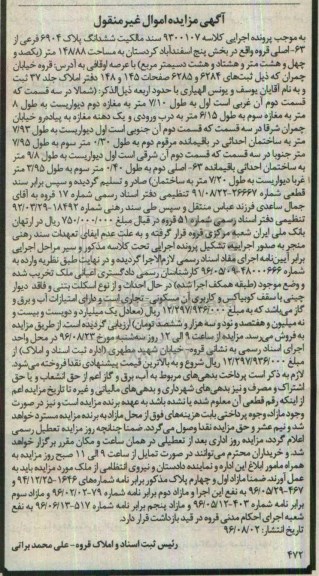 آگهی مزایده اموال غیر منقول
به موجب پرونده اجرایی کلاسه ۹۳۰۰۱۰۷ سند مالکیت ششدانگ پلاک ۶۹۰۴ فرعی از
۶۳- اصلی قروه واقع در بخش پنج اسفندآباد کردستان به مساحت ۱۴۸/۸۸ متر (یکصد و
چهل و هشت متر و هشتاد و هشت دسیمتر مربع) با عرصه اوقافی به آدرس: قروه خیابان
چمران که ذیل ثبت‌های ۶۲۸۴ و ۶۲۸۵ صفحات ۱۴۵ و ۱۴۸ دفتر املاک جلد ۳۷ ثبت
و به نام آقایان یوسف و یونس الهیاری با حدود اربعه ذیل‌الذکر: (شمالا در سه قسمت که
قسمت دوم آن غربی است اول به طول ۷/۱۰ متر به مغازه دوم دیواریست به طول ۸
متر به مغازه سوم به طول ۶/۱۵ متر به درب ورودی و یک دهنه مغازه به پیاده‌رو خیابان
چمران شرقا در سه قسمت که قسمت دوم آن جنوبی است اول دیواریست به طول ۷/۹۳
متر به ساختمان احداثی در باقیمانده مرقوم دوم به طول ۰/۳۰ متر سوم به طول ۷/۹۵
متر جنوبا در سه قسمت که قسمت دوم آن شرقی است اول دیواریست به طول ۹/۸ متر
به ساختمان احداثی باقیمانده ۶۳- اصلی دوم به طول ۰/۴۰ متر سوم به طول ۳/۹۵ متر
غربا دیواریست به طول ۷/۲۰ متر به ساختمان) صادر و تسلیم گردیده و سپس برابر سند
قطعی شماره ۲۶۶۶۷-۹۱/۰۸/۲۳ تنظیمی دفتر اسناد رسمی شماره ۱۷ قروه به آقای
جمال ساعدی فرزند عباس منتقل و سپس طی سند رهنی شماره ۱۸۴۹۲-۹۲/۰۳/۲۹
تنظیمی دفتر اسناد رسمی شماره ۵۱ قروه در قبال مبلغ ۷۵۰/۰۰۰/۰۰۰ ریال در ارتهان
بانک ملی ایران شعبه مرکزی قروه قرار گرفته و به علت عدم ایفای تعهدات سند رهنی
منجر به صدور اجراییه، تشکیل پرونده اجرایی تحت کلاسه مذکور و سیر مراحل اجرایی
برابر آیین‌نامه اجرای مفاد اسناد رسمی لازم‌الاجرا گردیده و در نهایت طبق نظریه وارده به
شماره ۴۸۰۰۰۶۶۶-۹۶/۰۵/۰۹ کارشناسان رسمی دادگستری اعیانی ملک تخریب شده
و وضع موجود (طبقه همکف اجرا شده) در حال احداث و از نوع اسکلت بتنی و فاقد دیوار
چینی با سقف کوبیاکس و کاربری آن مسکونی- تجاری است و دارای امتیازات آب و برق و
گاز می‌باشد که به مبلغ ۱۲/۲۹۷/۹۳۶/۰۰۰ ریال (معادل یک میلیارد و دویست و بیست و
نه میلیون و هفتصد و نود و سه هزار و ششصد تومان) ارزیابی گردیده است. از طریق مزایده
به فروش می‌رسد. مزایده از ساعت ۹ الی ۱۲ روز سه‌شنبه مورخ ۹۶/۰۸/۲۳ در محل واحد
اجرای اسناد رسمی به نشانی قروه- خیابان شهید مطهری (اداره ثبت اسناد و املاک) از
مبلغ ۱۲/۲۹۷/۹۳۶/۰۰۰ ریال شروع و به بالاترین قیمت پیشنهادی نقدا فروخته می‌شود.
لازم به ذکر است پرداخت بدهی‌های مربوط به آب، برق و گاز اعم از حق انشعاب و یا حق
اشتراک و مصرف و نیز بدهی‌های شهرداری و بدهی‌های مالیاتی و غیره تا تاریخ مزایده اعم
از اینکه رقم قطعی آن معلوم شده یا نشده باشد به عهده برنده مزایده است و نیز در صورت
وجود مازاد وجوه پرداختی بابت هزینه‌های فوق از محل مازاد به برنده مزایده مسترد خواهد
شد و نیم عشر و حق مزایده نقدا وصول می‌گردد. ضمنا چنانچه روز مزایده تعطیل رسمی
اعلام گردد، مزایده روز اداری بعد از تعطیلی در همان ساعت و مکان مقرر برگزار خواهد
شد و خریداران محترم می‌توانند در صورت تمایل از ساعت ۹ الی ۱۱ صبح روز مزایده به
همراه مامور ابلاغ این اداره و نماینده دادستان و نیروی انتظامی از ملک مورد مزایده باید به
عمل آورند. ضمنا مازاد اول و چهارم پلاک مذکور برابر نامه شماره‌های ۱۶۴۶-۹۴/۱۲/۲۵ و
۴۶۷-۹۶/۰۵/۲۹ به نفع این اجرا و مازاد دوم برابر نامه شماره ۷۹-۹۶/۰۲/۰۲ و مازاد سوم
برابر نامه شماره ۴۰۳-۹۶/۰۵/۱۲ و مازاد پنجم برابر نامه شماره ۵۱۷-۹۶/۰۶/۱۳ به نفع
شعبه اجرای احکام مدنی قروه در قید بازداشت قرار دارد.
تاریخ انتشار: ۹۶/۰۸/۰۲
رئیس ثبت اسناد و املاک قروه- علی محمد براتی
۴۷۲